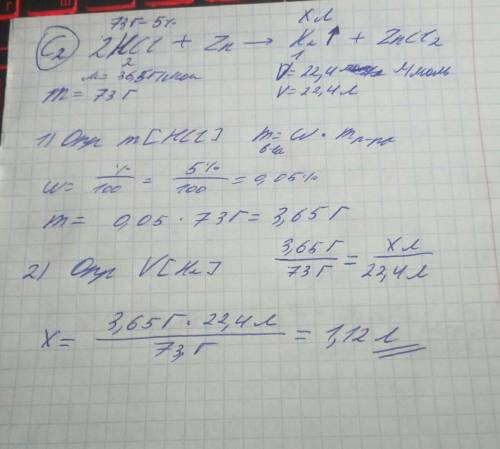 73г-5%
Хл
C2 2HCl + Zn → H2↑ + ZnCl2
2 1
M=36,5г/моль V=22,4 л/моль
m=73г V=22,4л
1) Опр m[HCl] m в-ва = w · m р-ра
w= %/100 = 5%/100 = 0,05%
m= 0,05 · 73г = 3,65г
2) Опр V[H2] 3,65г/73г = Хл/22,4л
X= 3,65г · 22,4л/73г = 1,12л